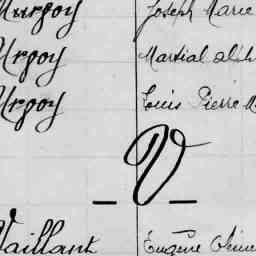 Murgoy Joseph Marie
Urgoy Martial
Urgoy Louis Pierre M
_ V _
Vaillant Eugène